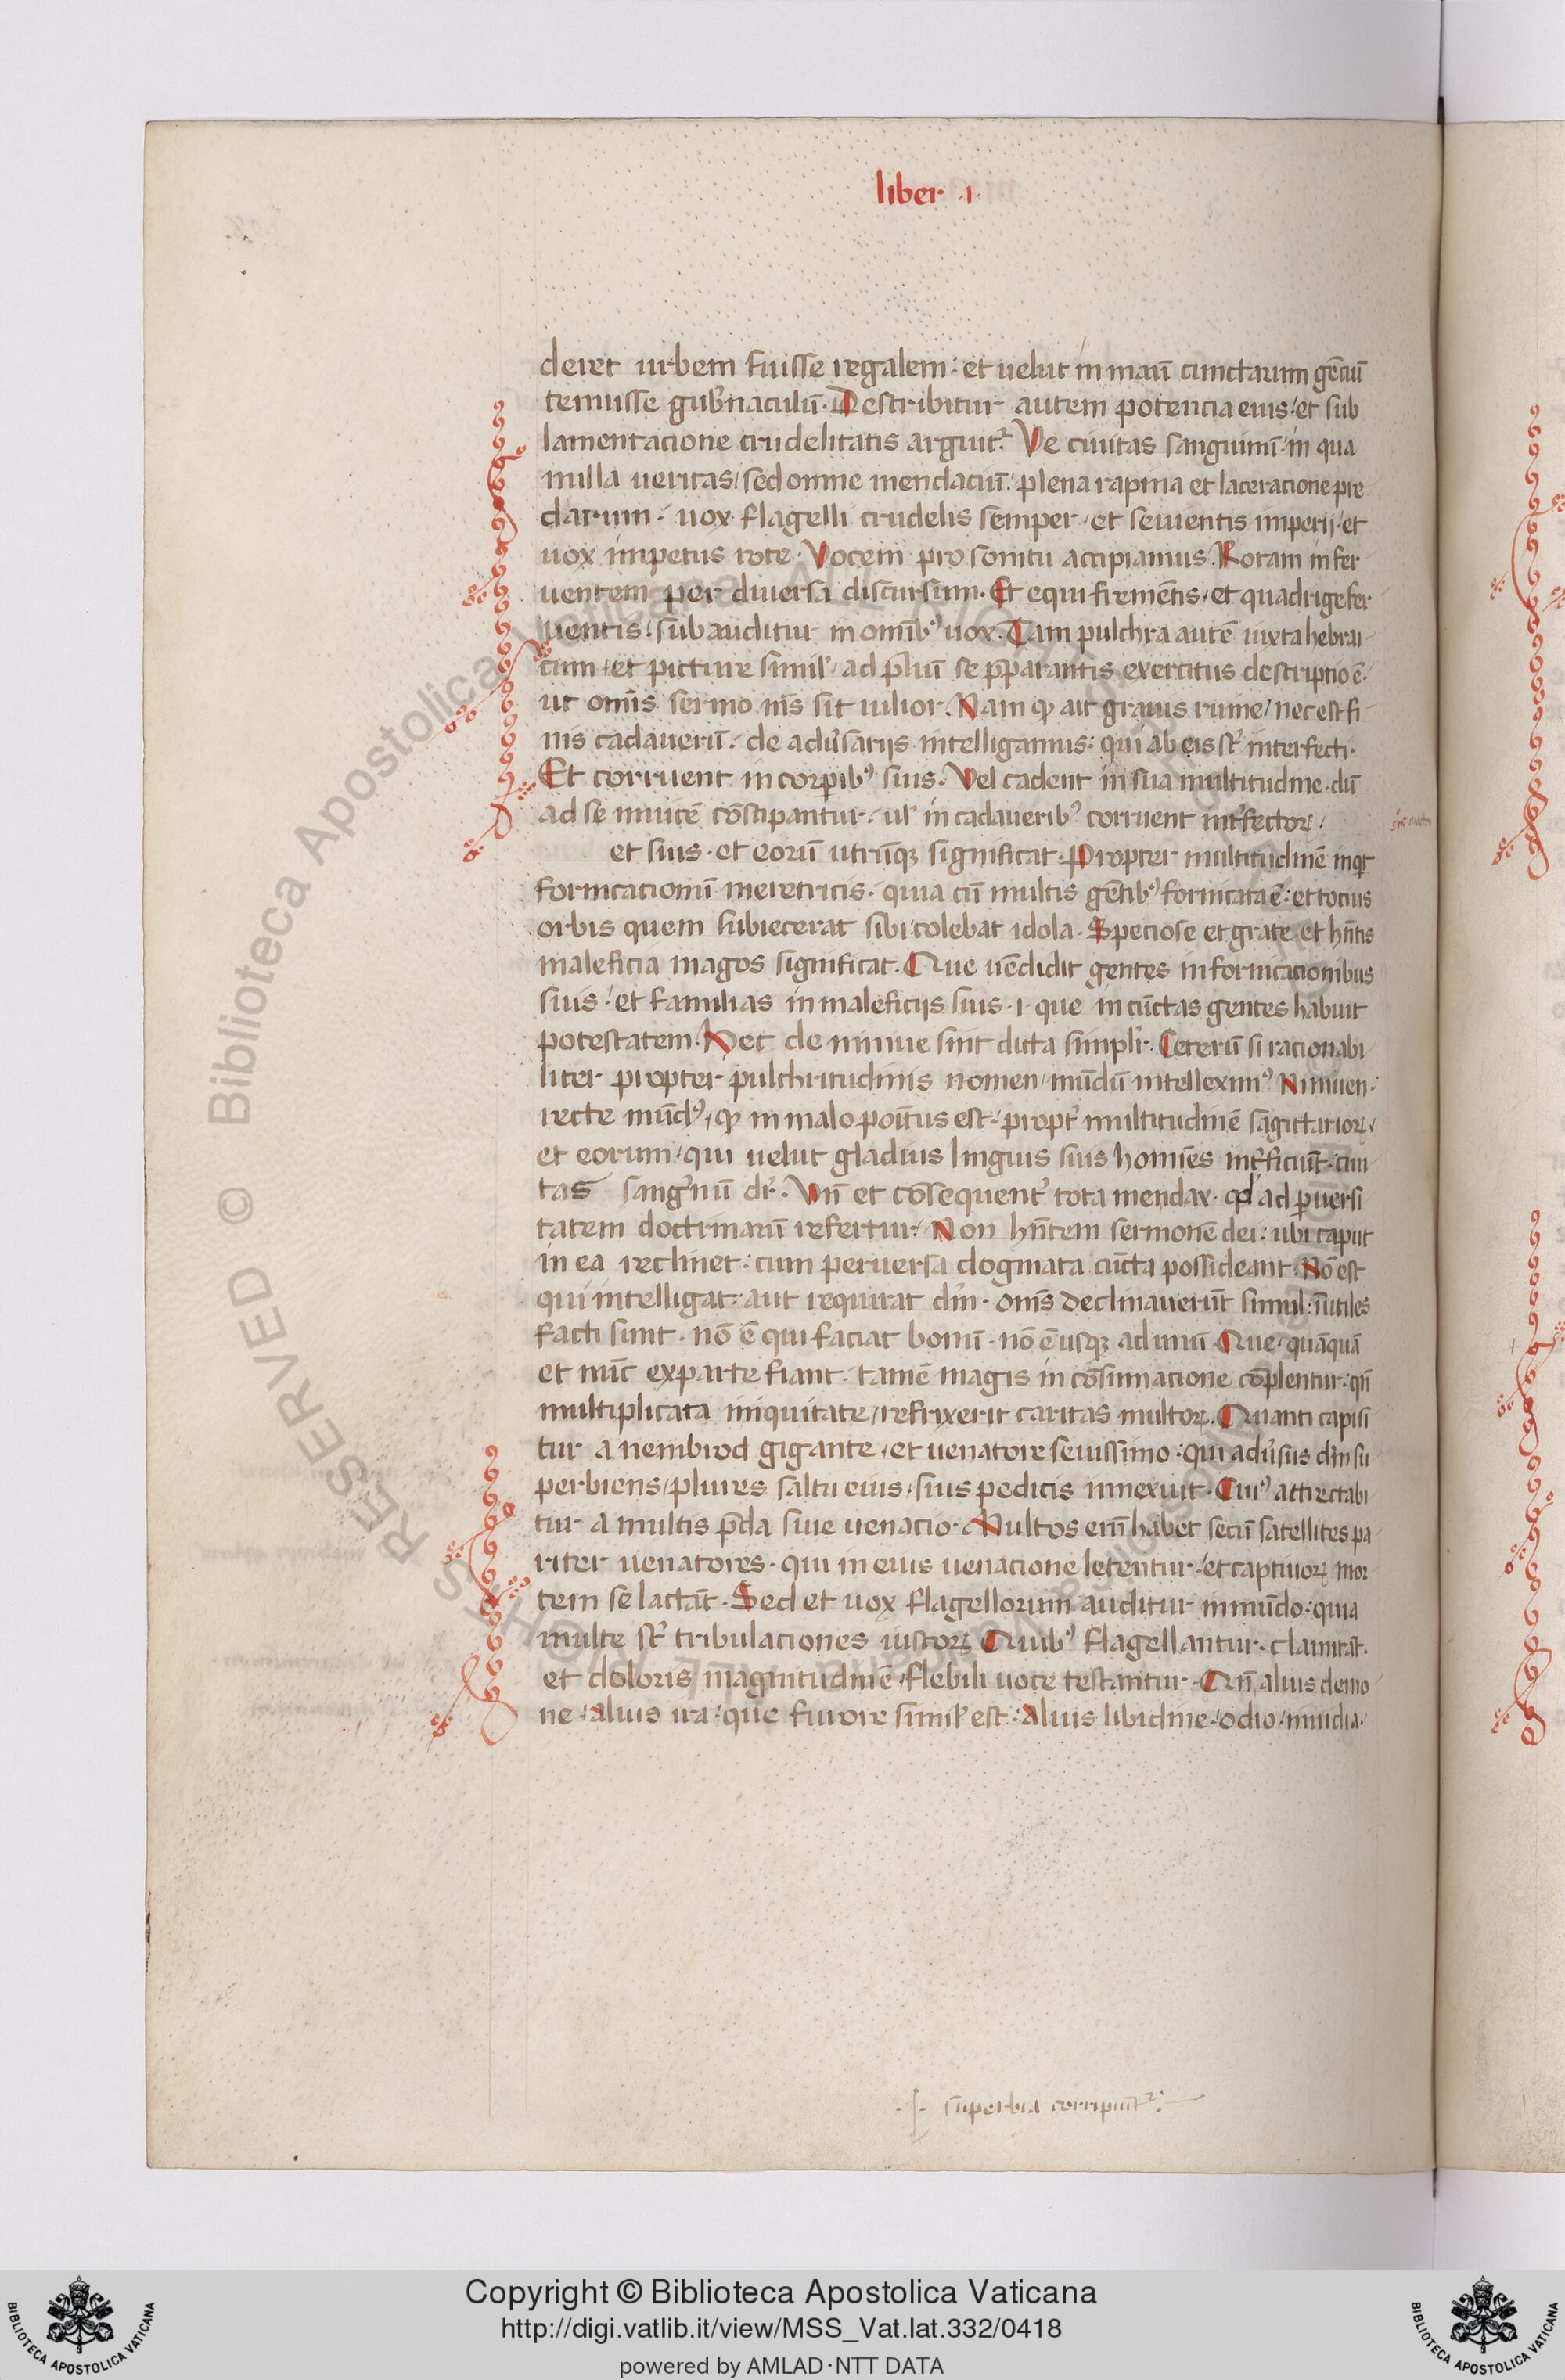 liber .i.
deret urbem fuisse regalem: et uelut in manū cunctarum gēciū
tenuisse gub̾naculū. Describitur autem potencia eius: et sub
lamentacione crudelitatis arguit᷑. Ve ciuitas sanguinū: in qua
nulla ueritas/ sed omne mendaciū: plena rapina et laceracione pre
darum. uox flagelli crudelis semper: et seuientis imperij. et
uox impetus rote. Vocem pro sonitu accipiamus. Rotam in fer
uentem per diuersa discursum. Et equi frementis, et quadrige fer
uentis: subauditur in omībꝰ uox. Tam pulchra autē iuxta hebrai
cum, et picture simil̾ ad p̄liū se p̄parantis exercitus descriptio ē.
ut omīs sermo mīs sit uilior. Nam qꝫ ait grauis ruine/ nec est fi
nis cadauerū: de adu̾sarijs intelligamus: qui ab eis st̾ interfecti.
Et corruent in corpibꝰ suis. Vel cadent in sua multitudine. dū
ad se inuicē cōstipantur. ul̾ in cadaueribꝰ corruent int̾fectoꝝ.
et suis. et eorū utrūqꝫ significat. Propter multitudinē inqt
fornicationū meretricis. quia cū multis gētibꝰ fornicata ē: et tocius
orbis quem subiecerat sibi: colebat idola. Speciose et grate et hn̄tis
maleficia magos significat. Que uēdidit gentes in fornicationibus
suis: et familias in maleficijs suis. i. que in cūctas gentes habuit
potestatem. Hec de niniue sint dicta simplr̾. Ceterū si racionabi
liter propter pulchritudinis nomen/ mūdū intelleximꝰ Niniuen:
recte mūdꝰ, qꝫ in malo poītus est: propt̾ multitudinē sagittarioꝝ,
et eorum/ qui uelut gladius linguis suis homīes int̾ficiūt. ciui
tas sang̾nū dr̾. Vn̄ et cōsequent̾ tota mendax. qd̾ ad puersi
tatem doctrinarū refertur. Non hn̄tem sermonē dei: ubi caput
in ea reclinet: cum peruersa dogmata cūcta possideant. Nō est
qui intelligat: aut requirat dm̄. omīs declinauerūt simul: īutiles
facti sunt. nō ē qui faciat bonū. nō ē usqꝫ ad unū. Que/ quāquā
et nūc ex parte fiant: tamē magis in cōsumacione cōplentur: qn̄
multiplicata iniquitate/ refrixerit caritas multoꝝ. Quanti capiū
tur a nembrod gigante, et uenatore seuissimo: qui adu̾sus dm̄ su
perbiens/ plures saltu eius, suis pedicis innexuit. Cuiꝰ attrectabi
tur a multis p̄da siue uenacio. Multos em̄ habet secū satellites pa
riter uenatores. qui in eius uenacione letentur. et captiuoꝝ mor
tem se lactāt. Sed et uox flagellorum auditur in mūdo: quia
multe st̾ tribulaciones iustoꝝ Quibꝰ flagellantur. clamitāt.
et doloris magnitudinē, flebili uoce testantur. Qn̄ alius demo
ne: alius ira: que furore simil̾ est: Alius libidine: odio: inuidia.
superbia corripiūt᷑:
Copyright © Biblioteca Apostolica Vaticana
http://digi.vatlib.it/view/MSS_Vat.lat.332/0418
powered by AMLAD·NTT DATA